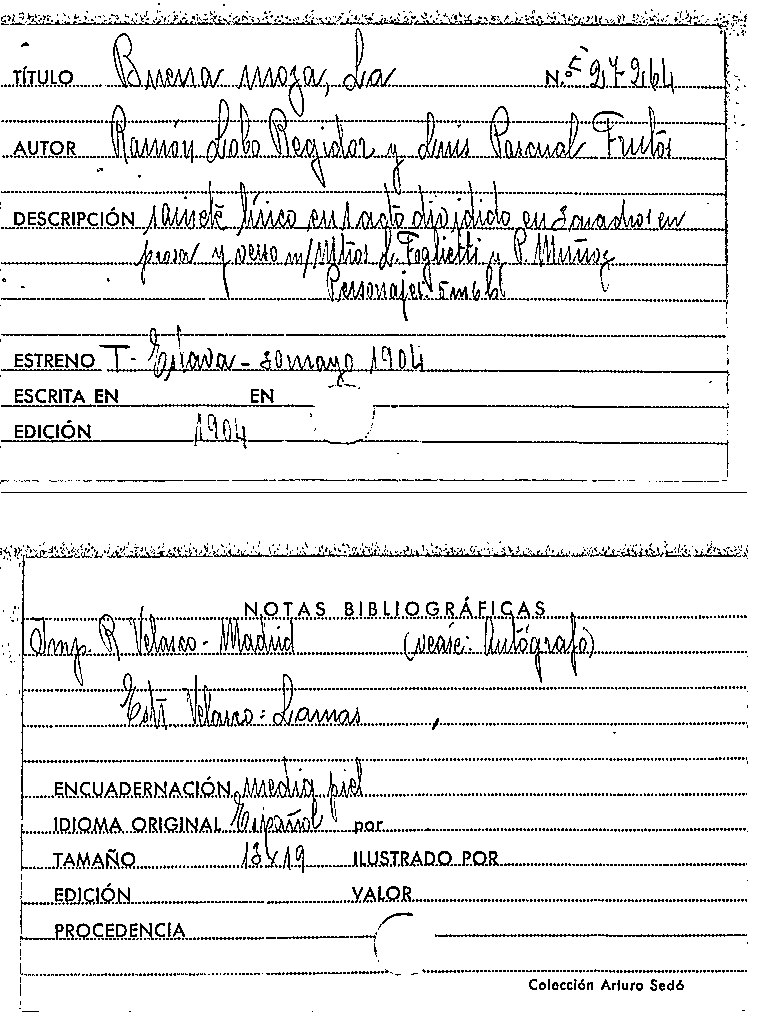 TÍTULO Buena moza, La N.º 527264
AUTOR Ramón Lobo Regidor y Luis Pascual Frutos
DESCRIPCIÓN sainete lírico en 1 acto dividido en 3 cuadros en
prosa y verso m/Mtros L. Foglietti y P. Muñoz
Personajes: 5 m 6 h
ESTRENO T- Eslava - 30 mayo 1904
ESCRITA EN EN
EDICIÓN 1904
NOTAS BIBLIOGRÁFICAS
Imp. R Velasco - Madrid (vease: Autógrafo)
Velasco = Lamas
ENCUADERNACIÓN media piel
IDIOMA ORIGINAL Español por
TAMAÑO 13x19 ILUSTRADO POR
EDICIÓN VALOR
PROCEDENCIA
Colección Arturo Sedó